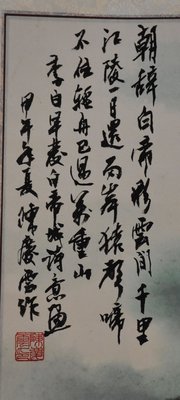 朝辞白帝彩雲间千里
江陵一日還两岸猿聲啼
不住輕舟已過萬重山
李白早發白帝城詩意画
甲午年夏陳慶雲作